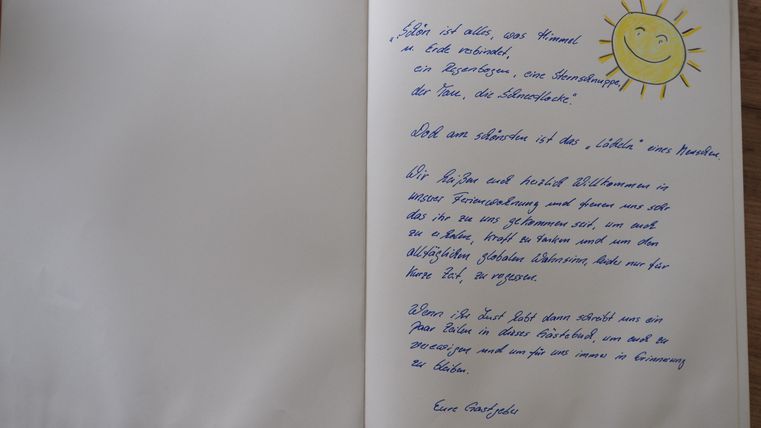 „Schön ist alles, was Himmel
u. Erde verbindet,
ein Regenbogen, eine Sternschnuppe,
der Tau, die Schneeflocke."
Doch am schönsten ist das „Lächeln" eines Menschen.
Wir heißen euch herzlich Willkommen in
unserer Ferienwohnung und freuen uns sehr
das ihr zu uns gekommen seit, um euch
zu erholen, Kraft zu tanken und um den
alltäglichen globalen Wahnsinn, leider nur für
kurze Zeit, zu vergessen.
Wenn ihr Lust habt dann schreibt uns ein
paar Zeilen in dieses Gästebuch, um euch zu
verewigen und um für uns immer in Erinnerung
zu bleiben.
Eure Gastgeber